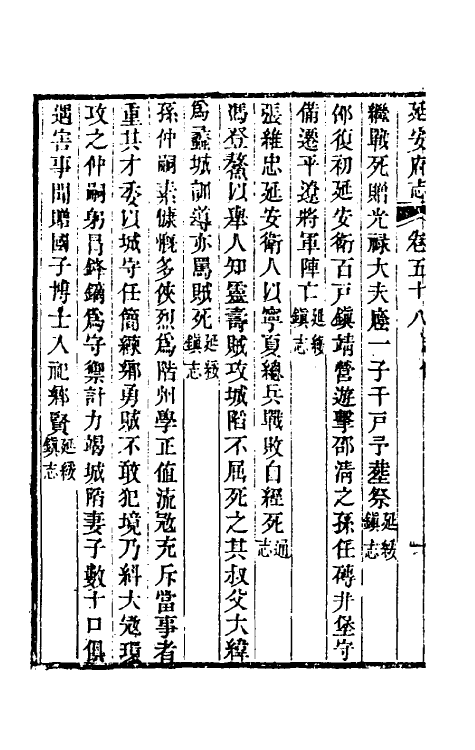 延安府志 卷五十八
繼戰死贈光祿大夫廕一子千戶予塟祭延綏鎮志
邵復初延安衛百戸鎮靖營遊擊邵清之孫任磚井堡守
備遷平遼將軍陣亡延綏鎮志
張維忠延安衛人以寧夏總兵戰敗自經死通志
馮登鰲以舉人知靈壽賊攻城陷不屈死之其叔父大緯
爲蠡城訓導亦罵賊死延綏鎮志
孫仲嗣素慷慨多俠烈爲階州學正值流冦充斥當事者
重其才委以城守任簡練鄉勇賊不敢犯境乃糾大冦環
攻之仲嗣躬冒鋒鏑爲守禦計力竭城陷妻子數十口俱
遇害事聞贈國子博士入祀鄉賢延綏鎮志